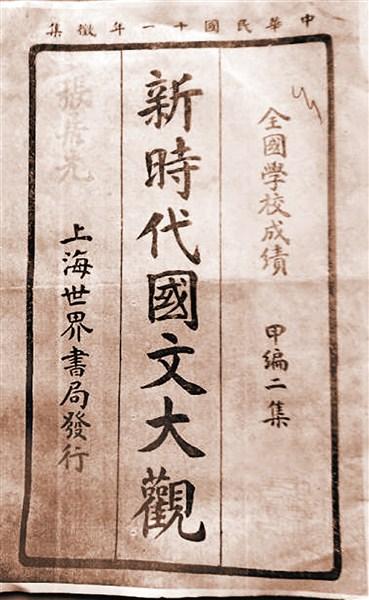 中華民國十一年徵集
全國學校成績　甲編二集
新時代國文大觀
上海世界書局發行